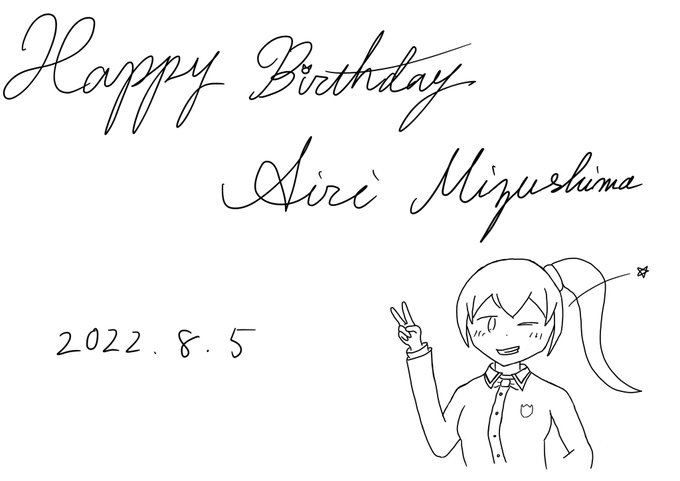 Happy Birthday
Airi Mizushima
2022.8.5